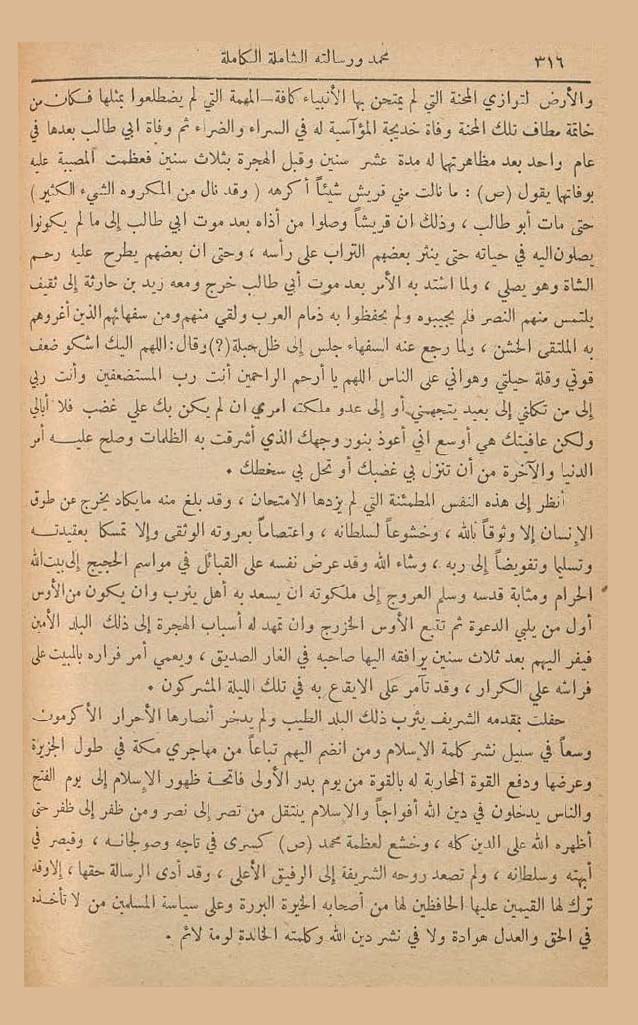 ٣١٦ محمد ورسالته الشاملة الكاملة
والأرض لترازي المحنة التي لم يمتحن بها الأنبياء كافة–المهمة التي لم يضطلعوا بمثلها فكان من
خاتمة مطاف تلك المحنة وفاة خديجة المؤآسية له في السراء والضراء ثم وفاة ابي طالب بعدها في
عام واحد بعد مظاهرتهما له مدة عشر سنين وقبل الهجرة بثلاث سنين فعظمت المصيبة عليه
بوفاتهما يقول (ص) : ما نالت مني قريش شيئاً أكرهه ( وقد نال من المكروه الشيء الكثير )
حتى مات أبو طالب ، وذلك ان قريشاً وصلوا من أذاه بعد موت ابي طالب إلى ما لم يكونوا
يصلون اليه في حياته حتى ينثر بعضهم التراب على رأسه ، وحتى ان بعضهم يطرح عليه رحم
الشاة وهو يصلي ، ولما اشتد به الأمر بعد موت أبي طالب خرج ومعه زيد بن حارثة إلى ثقيف
يلتمس منهم النصر فلم يجيبوه ولم يحفظوا به ذمام العرب ولقي منهم ومن سفهائهم الذين أغروهم
به الملتقى الخشن ، ولما رجع عنه السفهاء جلس إلى ظل حبلة (?) وقال : اللهم اليك اشكو ضعف
قوتي وقلة حيلتي وهواني على الناس اللهم يا أرحم الراحمين أنت رب المستضعفين وأنت ربي
إلى من تكلني إلى بعيد يتجهمني أو إلى عدو ملكته امري ان لم يكن بك علي غضب فلا أبالي
ولكن عافيتك هي أوسع اني أعوذ بنور وجهك الذي أشرقت به الظلمات وصلح عليه أمر
الدنيا والآخرة من أن تنزل بي غضبك أو تحل بي سخطك .
أنظر إلى هذه النفس المطمئنة التي لم يزدها الامتحان ، وقد بلغ منه ما يكاد يخرج عن طوق
الإنسان إلا وثوقاً بالله ، وخشوعاً لسلطانه ، واعتصاماً بعروته الوثقى وإلا تمسكا بعقيدته
وتسليما وتفويضاً إلى ربه ، وشاء الله وقد عرض نفسه على القبائل في مواسم الحجيج إلى بيت الله
الحرام ومثابة قدسه وسلم العروج إلى ملكوته ان يسعد به أهل يثرب وان يكون من الأوس
أول من يلبي الدعوة ثم تتبع الأوس الخزرج وان تمهد له أسباب الهجرة إلى ذلك البلد الأمين
فيفر اليهم بعد ثلاث سنين يرافقه اليها صاحبه في الغار الصديق ، ويعمي أمر فراره بالمبيت على
فراشه علي الكرار ، وقد تآمر على الايقاع به في تلك الليلة المشركون .
حفلت بمقدمه الشريف يثرب ذلك البلد الطيب ولم يدخر أنصارها الأحرار الأكرمون
وسعاً في سبيل نشر كلمة الإسلام ومن انضم اليهم تباعاً من مهاجري مكة في طول الجزيرة
وعرضها ودفع القوة المحاربة له بالقوة من يوم بدر الأولى فاتحة ظهور الإسلام إلى يوم الفتح
والناس يدخلون في دين الله أفواجاً والإسلام ينتقل من نصر إلى نصر ومن ظفر إلى ظفر حتى
أظهره الله على الدين كله ، وخشع لعظمة محمد (ص) كسرى في تاجه وصولجانه ، وقيصر في
أبهته وسلطانه ، ولم تصعد روحه الشريفة إلى الرفيق الأعلى ، وقد أدى الرسالة حقها ، إلا وقد
ترك لها القيمين عليها الحافظين لها من أصحابه الخيرة البررة وعلى سياسة المسلمين من لا تأخذه
في الحق والعدل هوادة ولا في نشر دين الله وكلمته الخالدة لومة لائم .